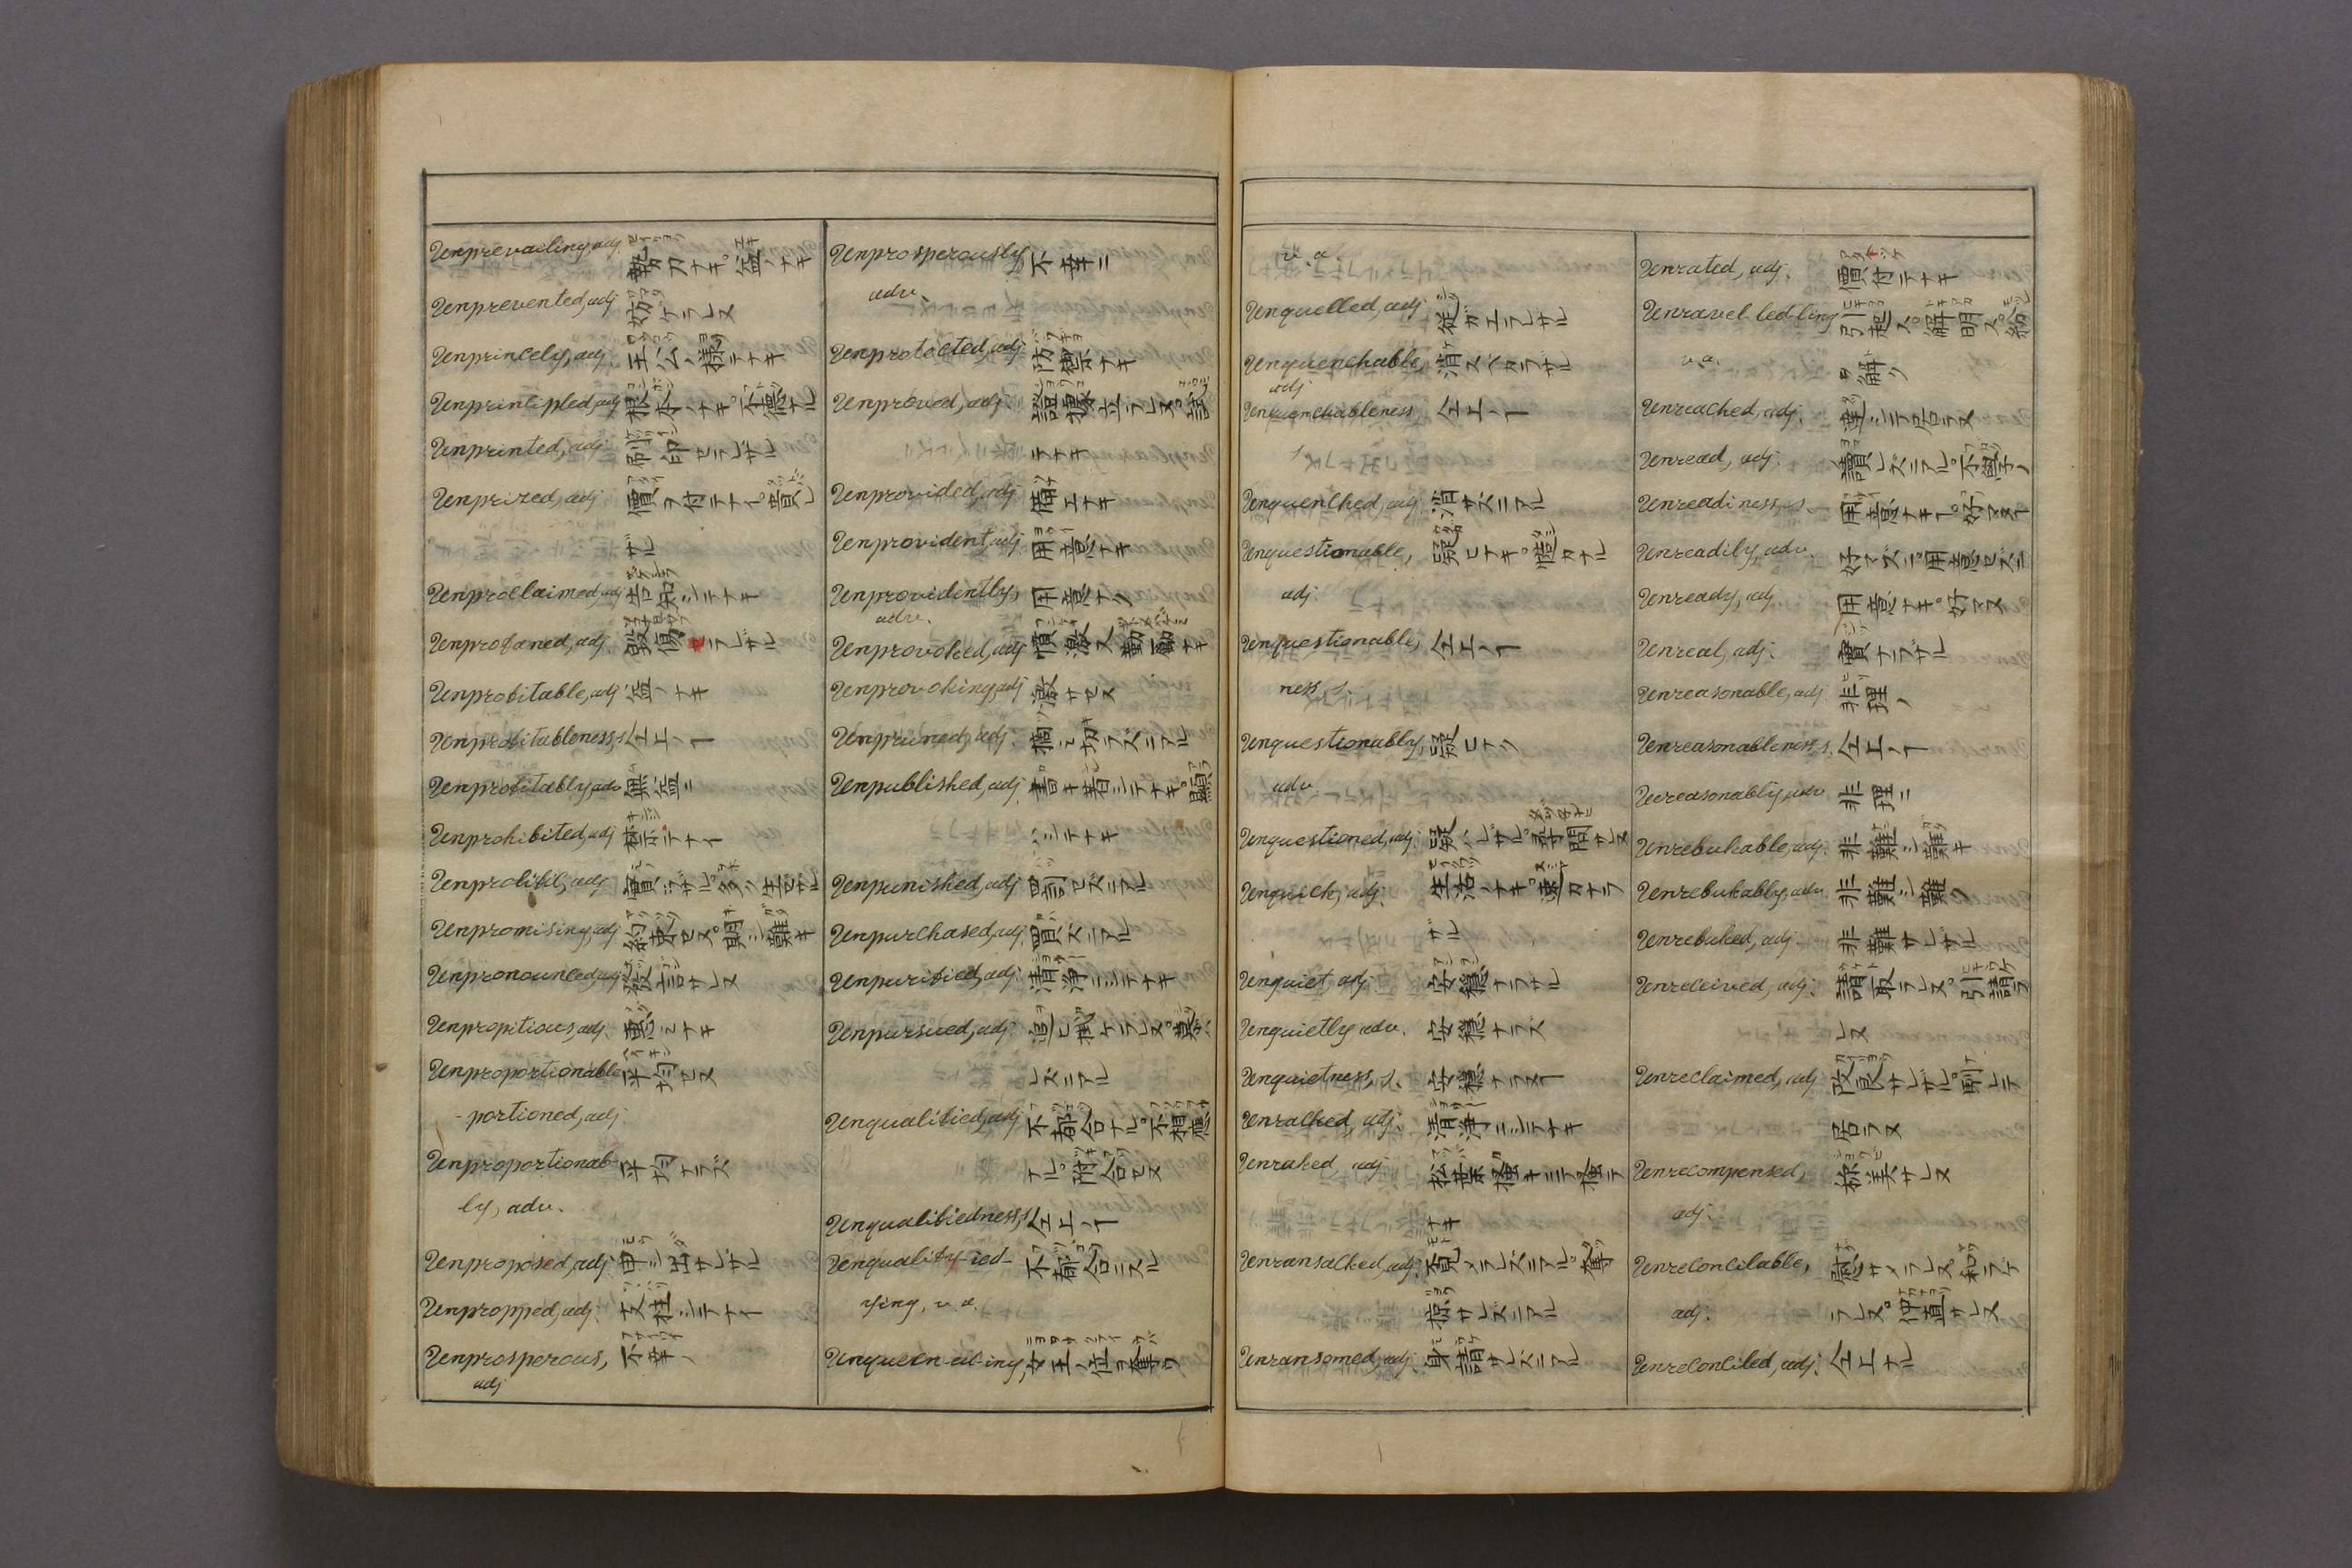 Unprevailing, adj. 勢力ナキ。益ノナキ
Unprevented, adj 妨ゲラレヌ
Unprincely, adj. 王公ノ様テナキ
Unprincipled, adj 根本ノナキ。不徳ナル
Unprinted, adj. 刷印セラレザル
Unprized, adj 價ヲ付テナイ。賞レ
ザル
Unproclaimed, adj 告知シテナキ
Unprofaned, adj. 毀傷セラレザル
Unprofitable, adj 益ノナキ
Unprofitableness, s 仝上ノヿ
Unprofitably, adv 無益ニ
Unprohibited, adj 禁テナイ
Unprolific, adj 實ラザル。多ク生セザル
Unpromising, adj 約束セヌ。期シ難キ
Unpronounced, adj 發言サレヌ
Unpropitious, adj. 惠ミナキ
Unproportionable 平均セヌ
-portioned, adj.
Unproportionab- 平均ナラズ
ly, adv.
Unproposed, adj. 申シ出サレザル
Unpropped, adj. 支柱シテナイ
Unprosperous, 不幸ノ
adj
Unprosperously 不幸ニ
adv.
Unprotected, adj. 防禦ナキ
Unproved, adj. 證據立ラレヌ。試
テナキ
Unprovided, adj. 備エナキ
Unprovident, adj 用意ナキ
Unprovidently, 用意ナク
adv.
Unprovoked, adj 憤激又動勵ナキ
Unprovoking, adj 激サセヌ
Unpruned, adj. 摘ミ切ラズニアル
Unpublished, adj 書キ著シテナキ。顯
ハシテナキ
Unpunished, adj 罰セズニアル
Unpurchased, adj. 買ハズニアル
Unpurified, adj. 清浄ニシテナキ
Unpursued, adj. 追ヒ掛ケラレヌ。
レズニアル
Unqualified, adj 不都合ナル。不相應
ナル。附合セヌ
Unqualifiedness, s 仝上ノヿ
Unqualify-ied- 不都合ニスル
ying, v. a.
Unqueen-ed-ing, 女王ノ位ヲ奪ウ
v. a.
Unquelled, adj 從ガエラレザル
Unquenchable, 消スベカラザル
adj
Unquenchableness 仝上ノヿ
s
Unquenched, adj 消サズニアル
Unquestionable, 疑ヒナキ。慥カナル
adj.
Unquestionable, 仝上ノヿ
ness, s.
Unquestionably, 疑ヒナク
adv.
Unquestioned, adj. 疑ハレザル。尋問サレヌ
Unquick, adj. 生活ノナキ。速カナラ
ザル
Unquiet, adj. 安穩ナラザル
Unquietly adv. 安穩ナラズ
Unquietness, s. 安穩ナラヌヿ
Unracked, adj. 清浄ニシテナキ
Unraked, adj 松葉掻キニテ掻テ
ナキ
Unransacked, adj. 覓メラレズニアル。奪
掠サレズニアル
Unransomed, adj. 身請サレズニアル
Unrated, adj. 價付テナキ
Unravel-led-ling 引起ス。解明ス。紛
v. a. ヲ解ク
Unreached, adj. 達シテ居ラヌ
Unread, adj. 讀レズニアル。不學ノ
Unreadiness, s. 用意ナキヿ。好マヌヿ
Unreadily, adv. 好マズニ。用意セズニ
Unready, adj 用意ナキ。好マヌ
Unreal, adj. 實ナラザル
Unreasonable, adj. 非理ノ
Unreasonableness, s. 仝上ノヿ
Unreasonably, adv 非理ニ
Unrebukable, adj. 非難シ難キ
Unrebukably, adv. 非難シ難ク
Unrebuked, adj. 非難サレザル
Unreceived, adj. 請取ラレヌ。引請ラ
レヌ
Unreclaimed, adj. 改良サレザル。馴レテ
居ラヌ
Unrecompensed, 称美サレヌ
adj.
Unreconcilable, 慰サメラレヌ。和ラゲ
adj. ラレヌ。仲直サレヌ
Unreconciled, adj. 仝上ナル